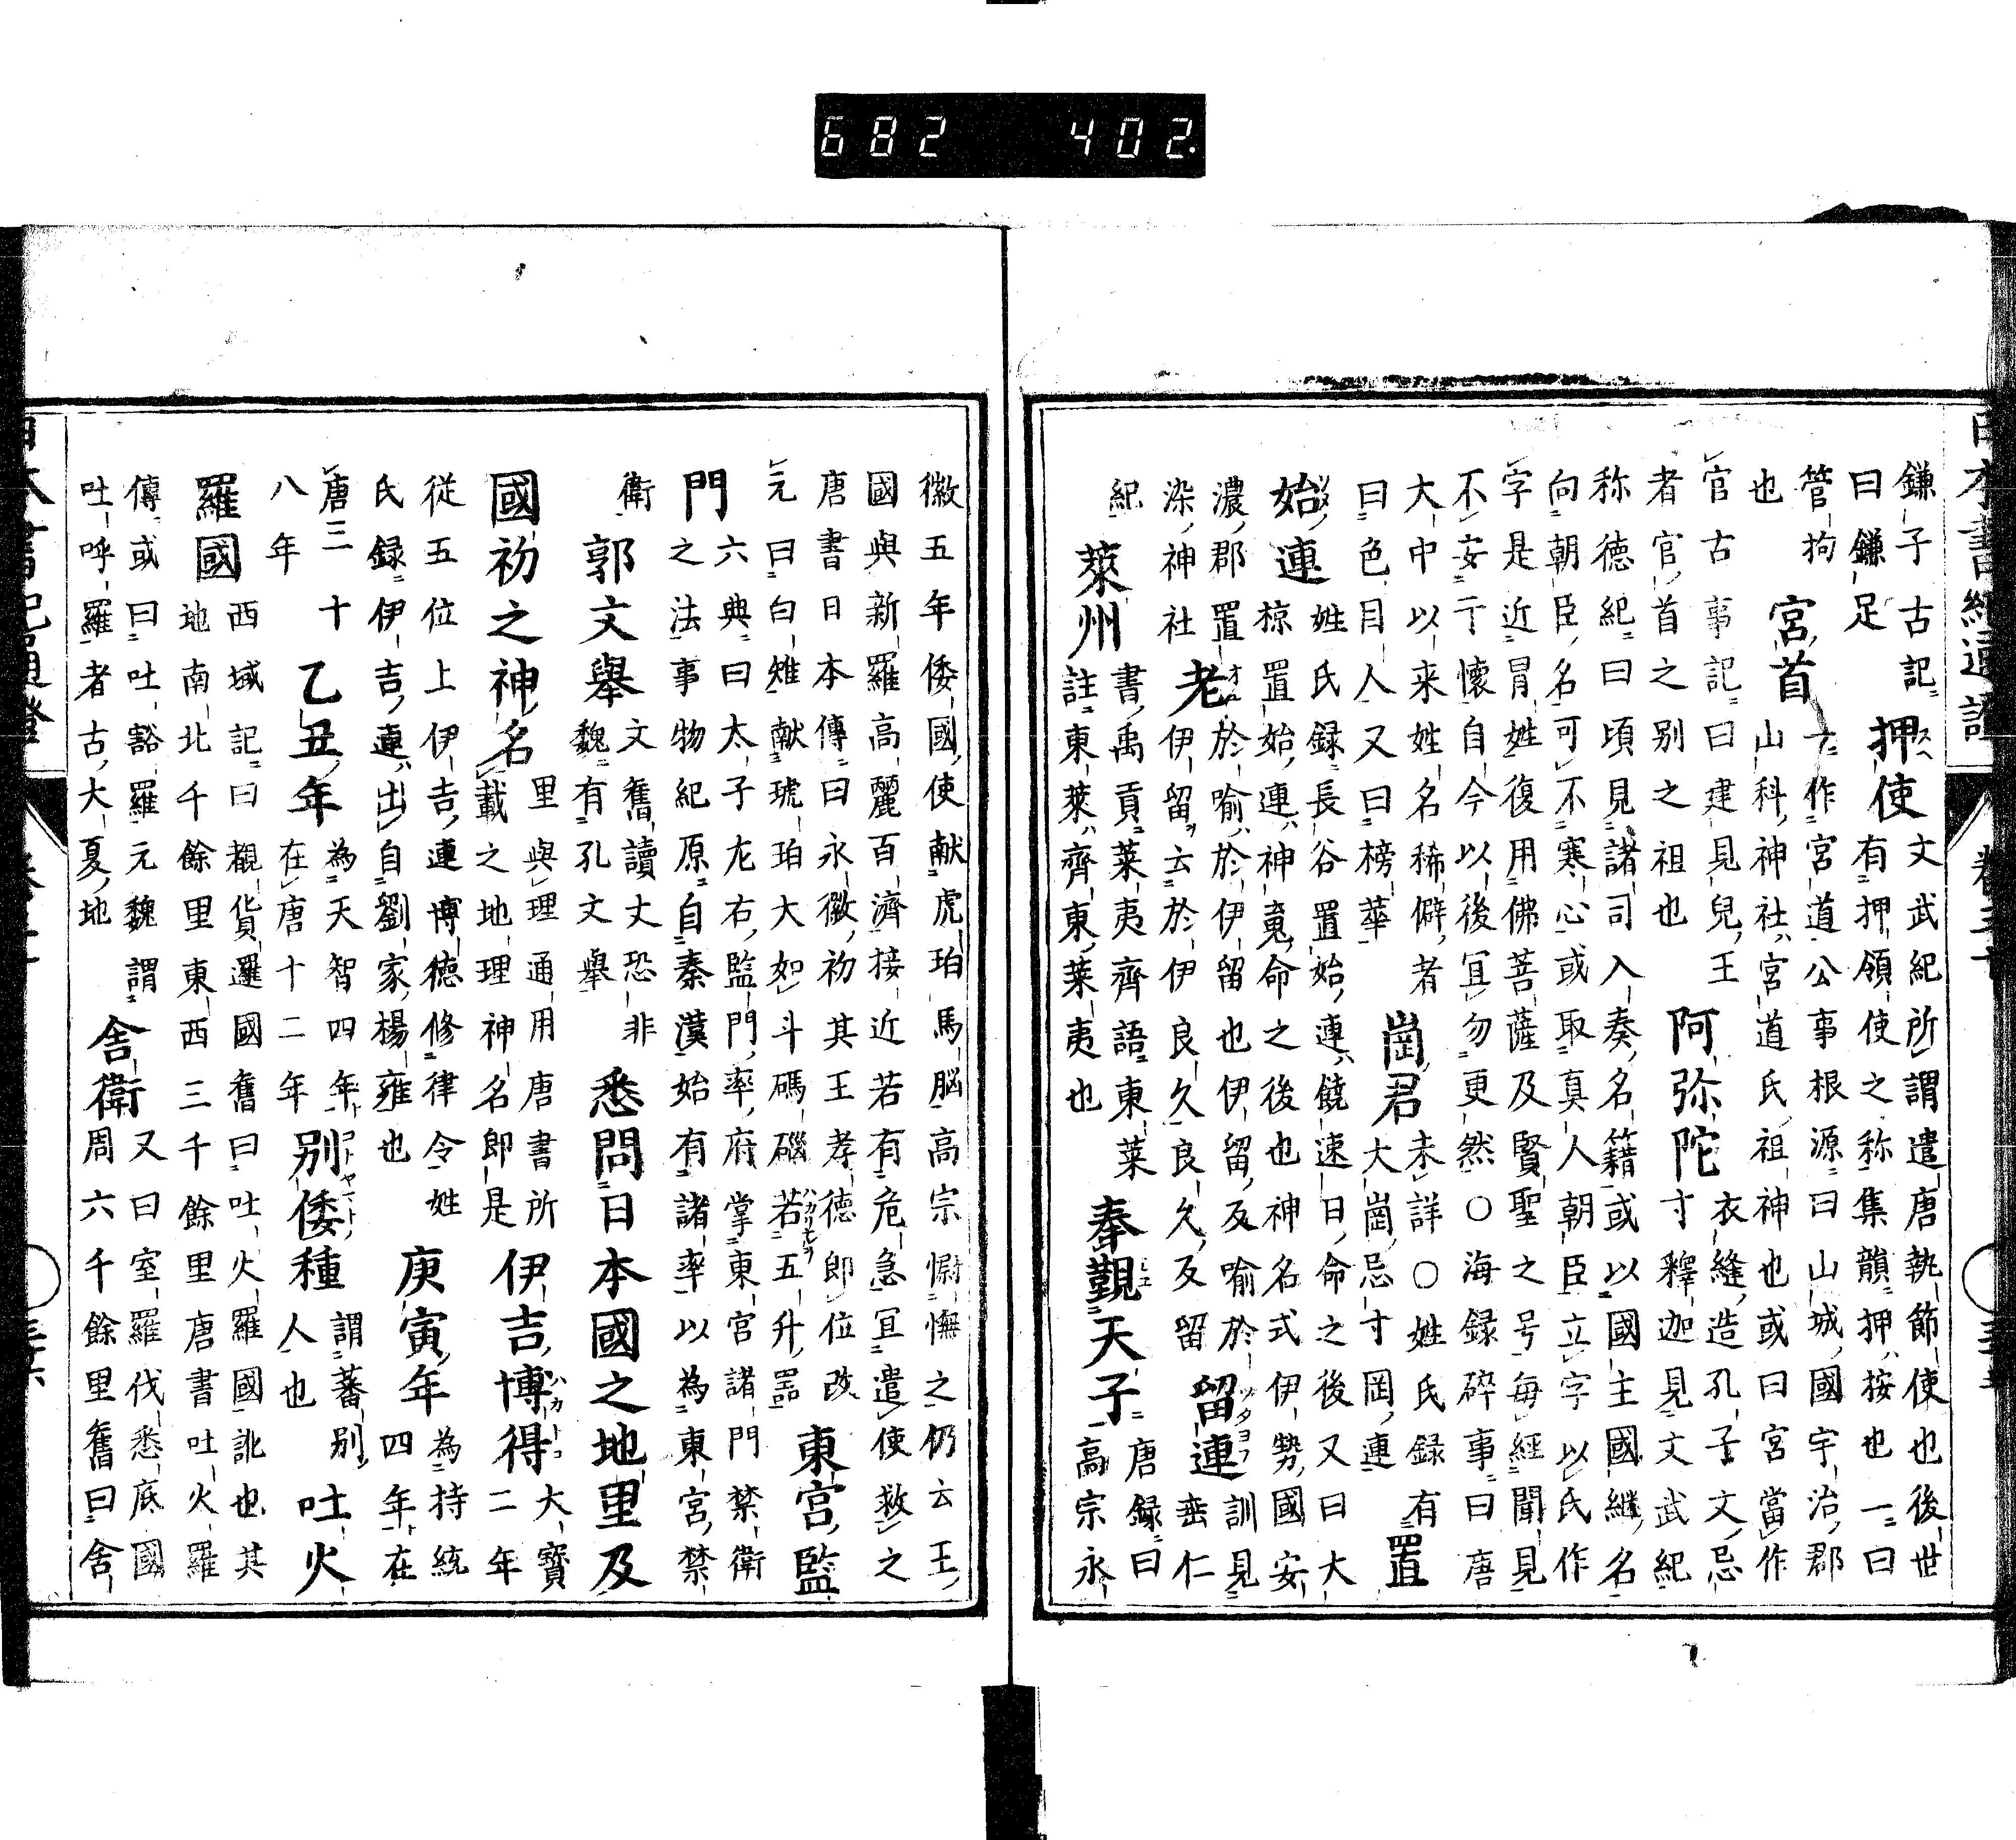 682 402.
鎌子古記
曰鎌足
押使
文武紀所謂遣唐執節使也後世
有押領使之称集韻押按也一曰
管拘
宮首
一作宮道公事根源曰山城國宇治郡
山科神社宮道氏祖神也或曰宮當作
也
官古事記曰建見兒王
者官首之別之祖也
阿弥陀
衣縫造孔子文忌
寸釋迦見文武紀
称德紀曰頃見諸司入奏名籍或以國主國継名
向朝臣名可不寒心或取真人朝臣立字以氏作
字是近冒姓復用佛菩薩及賢聖之号毎經聞見
不安于懷自今以後冝勿更然○海録碎事曰唐
大中以来姓名稀僻者未詳○姓氏録有
曰色目人又曰榜華
崗君
大崗忌寸岡連
置
始連
姓氏録長谷置始連饒速日命之後又曰大
椋置始連神䰟命之後也神名式伊勢國安
濃郡置
染神社
老
於喻於伊留也伊留反喻於
伊留云於伊良久良久反留
留連
訓見
垂仁
紀
萊州
書禹貢萊夷齊語東萊
註東萊齊東萊夷也
奉覲天子
唐録曰
高宗永
徽五年倭國使献虎珀馬脳高宗慰憮之仍云王
國與新羅高麗百濟接近若有危急冝遣使救之
唐書日本傳曰永徽初其王孝德即位改
元曰白雉献琥珀大如斗碼碯若五升噐
東宮監
門
六典曰太子左右監門率府掌東宮諸門禁衛
之法事物紀原自秦漢始有諸率以為東宮禁
衛
郭文舉
文舊讀丈恐非
魏有孔文舉
悉問日本國之地里及
國初之神名
里與理通用唐書所
載之地理神名即是
伊吉博得
大寶
二年
從五位上伊吉連博德修律令姓
氏録伊吉連出自劉家楊雍也
庚寅年
為持統
四年在
唐三十
八年
乙丑年
為天智四年
在唐十二年
別倭種
謂蕃別
人也
吐火
羅國
西域記曰覩貨邏國舊曰吐火羅國訛也其
地南北千餘里東西三千餘里唐書吐火羅
傳或曰吐豁羅元魏謂
吐呼羅者古大夏地
舍衛
又曰室羅伐悉底國
周六千餘里舊曰舍